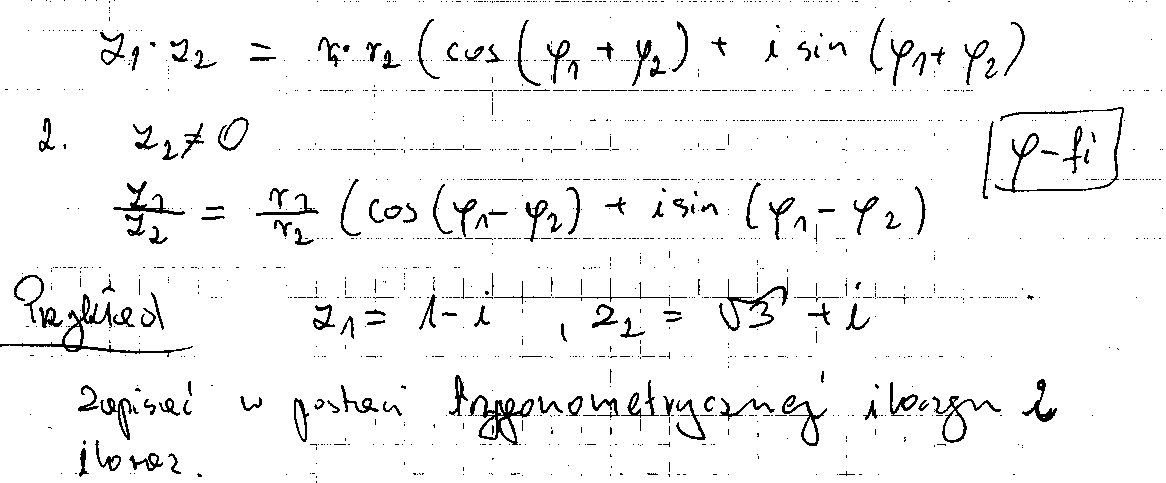 z₁·z₂ = r₁·r₂ (cos(φ₁+φ₂) + i sin (φ₁+φ₂)
2. z₂≠0
φ-fi
z₁/z₂ = r₁/r₂ (cos(φ₁-φ₂) + i sin (φ₁-φ₂)
Przykład z₁= 1-i , z₂ = √3 + i
Zapisać w postaci trygonometrycznej iloczyn i
iloraz.